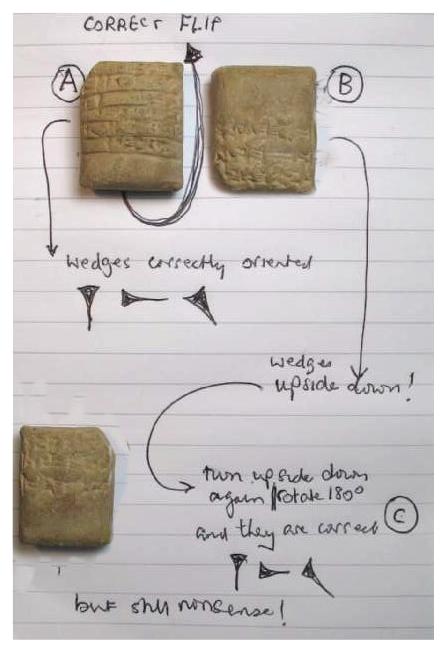 CORRECT FLIP
A
B
wedges correctly oriented
wedges
upside down!
turn upside down
again / rotate 180°
and they are correct
C
but still nonsense!